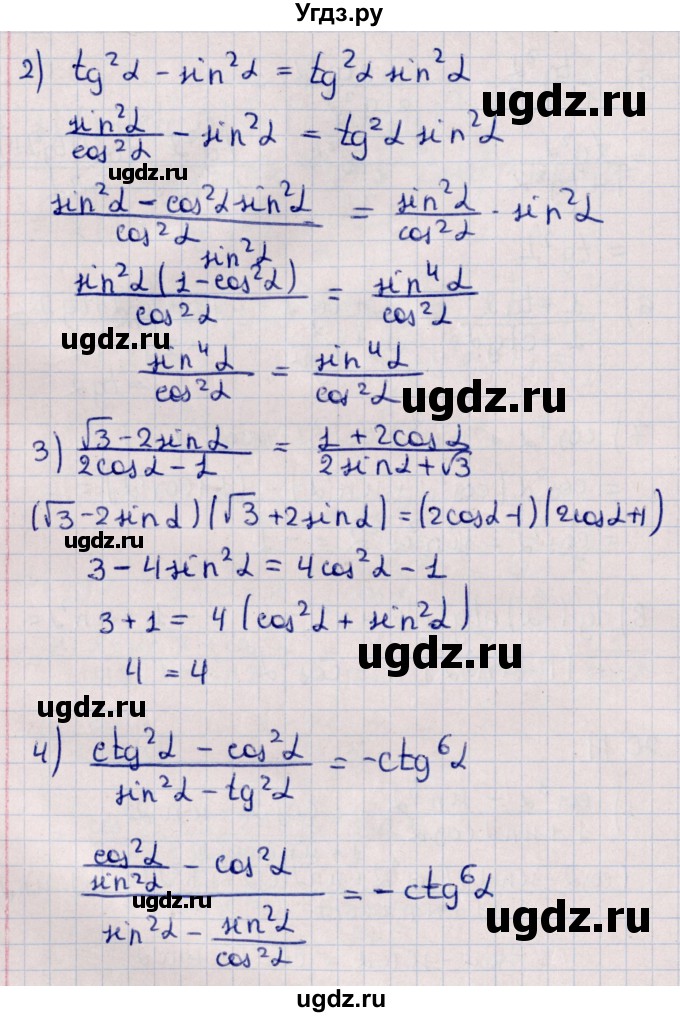 Угдз.ру
2) tg²α - sin²α = tg²α sin²α
ugdz.ru
sin²α/cos²α - sin²α = tg²α sin²α
ugdz.ru
(sin²α - cos²α sin²α)/cos²α = sin²α/cos²α · sin²α
sin²α
sin²α(1 - cos²α)/cos²α = sin⁴α/cos²α
ugdz.ru
sin⁴α/cos²α = sin⁴α/cos²α
ugdz.ru
3) (√3 - 2sinα)/(2cosα - 1) = (1 + 2cosα)/(2sinα + √3)
(√3 - 2sinα)(√3 + 2sinα) = (2cosα - 1)(2cosα + 1)
ugdz.ru
3 - 4sin²α = 4cos²α - 1
3 + 1 = 4(cos²α + sin²α)
ugdz.ru
4 = 4
ugdz.ru
4) (ctg²α - cos²α)/(sin²α - tg²α) = -ctg⁶α
(cos²α/sin²α - cos²α)/(sin²α - sin²α/cos²α) = -ctg⁶α
ugdz.ru
ugdz.ru
ugdz.ru